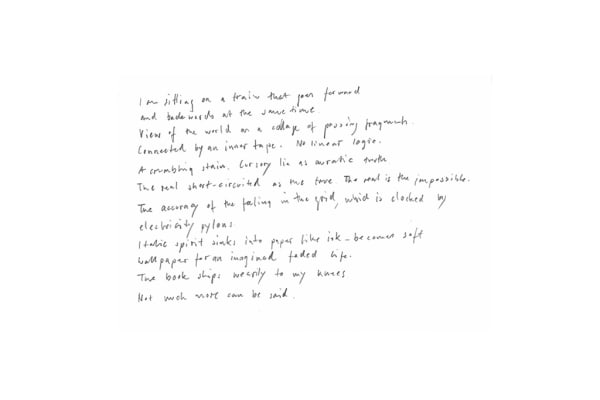 I am sitting on a train that goes forward
and backwards at the same time
View of the world as a collage of passing fragments.
Connected by an inner tape. No linear logic.
A crumbling stain. Cursory lie as auratic truth
The real short-circuited as the true. The real is the impossible.
The accuracy of the feeling in the grid, which is clocked by
electricity pylons.
Italic spirit sinks into paper like ink – becomes soft
wallpaper for an imagined faded life.
The book slips wearily to my knees
Not much more can be said.